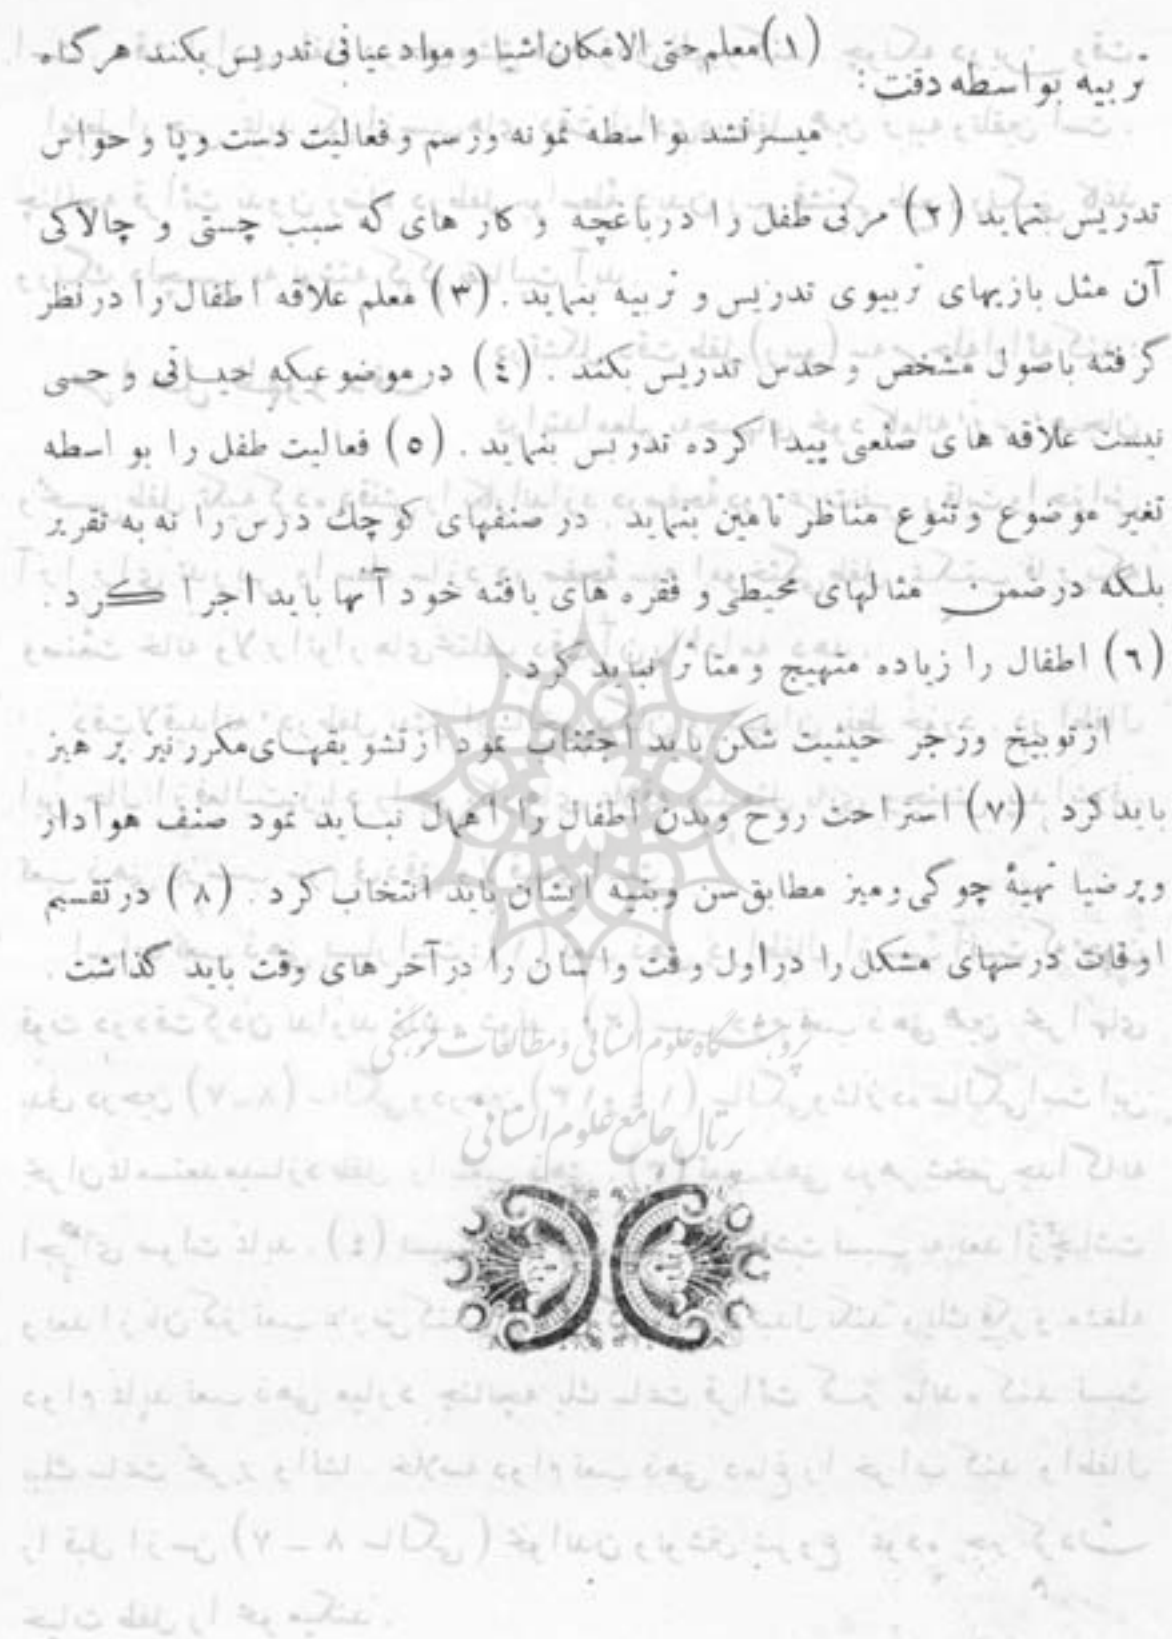 تربیه بواسطه دقت : (١) معلم حتی الامکان اشیا و مواد عیانی تدریس بکند هرگاه
میسر نشد بواسطه نمونه ورسم وفعالیت دست وپا و حواس
تدریس بنماید (٢) مربی طفل را درباغچه و کار های که سبب چستی و چالاکی
آن مثل بازیهای تربیوی تدریس و تربیه بنماید . (٣) معلم علاقه اطفال را درنظر
گرفته باصول مشخص و حدس تدریس بکند . (٤) در موضوعیکه حیاتی و حسی
نیست علاقه های صنعی پیدا کرده تدریس بنماید . (٥) فعالیت طفل را بو اسطه
تغیر موضوع و تنوع مناظر تامین بنماید . در صنفهای کوچك درس را نه به تقریر
بلکه درضمن مثالهای محیطی و فقره های یافته خود آنها باید اجرا کرد .
(٦) اطفال را زیاده متهیج و متاثر نباید کرد .
ازتوبیخ وزجر حیثیت شکن باید اجتناب نمود ازتشویقهای مکرر نیز پر هیز
باید کرد (٧) استراحت روح وبدن اطفال را اهمال نباید نمود صنف هوادار
وپر ضیا تهیهٔ چوکی ومیز مطابق سن وبنیه ایشان باید انتخاب کرد . (٨) در تقسیم
اوقات درسهای مشکل را دراول وقت واسان را درآخر های وقت باید گذاشت .
پژوهشگاه علوم انسانی و مطالعات فرهنگی
پرتال جامع علوم انسانی